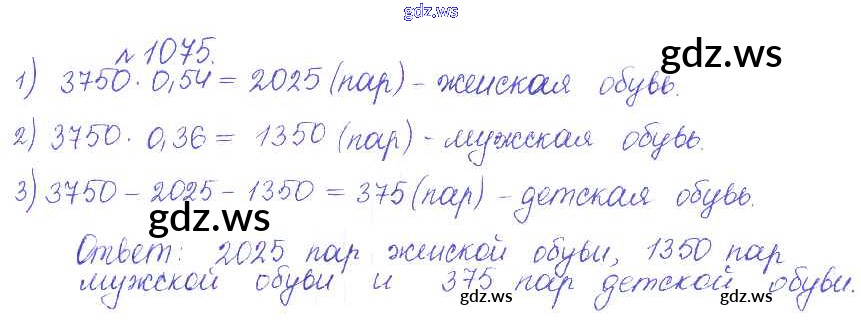 gdz.ws
№ 1075.
gdz.ws
1) 3750 · 0,54 = 2025 (пар) - женская обувь.
2) 3750 · 0,36 = 1350 (пар) - мужская обувь.
3) 3750 - 2025 - 1350 = 375 (пар) - детская обувь.
gdz.ws
Ответ: 2025 пар женской обуви, 1350 пар
мужской обуви и 375 пар детской обуви.
gdz.ws
gdz.ws